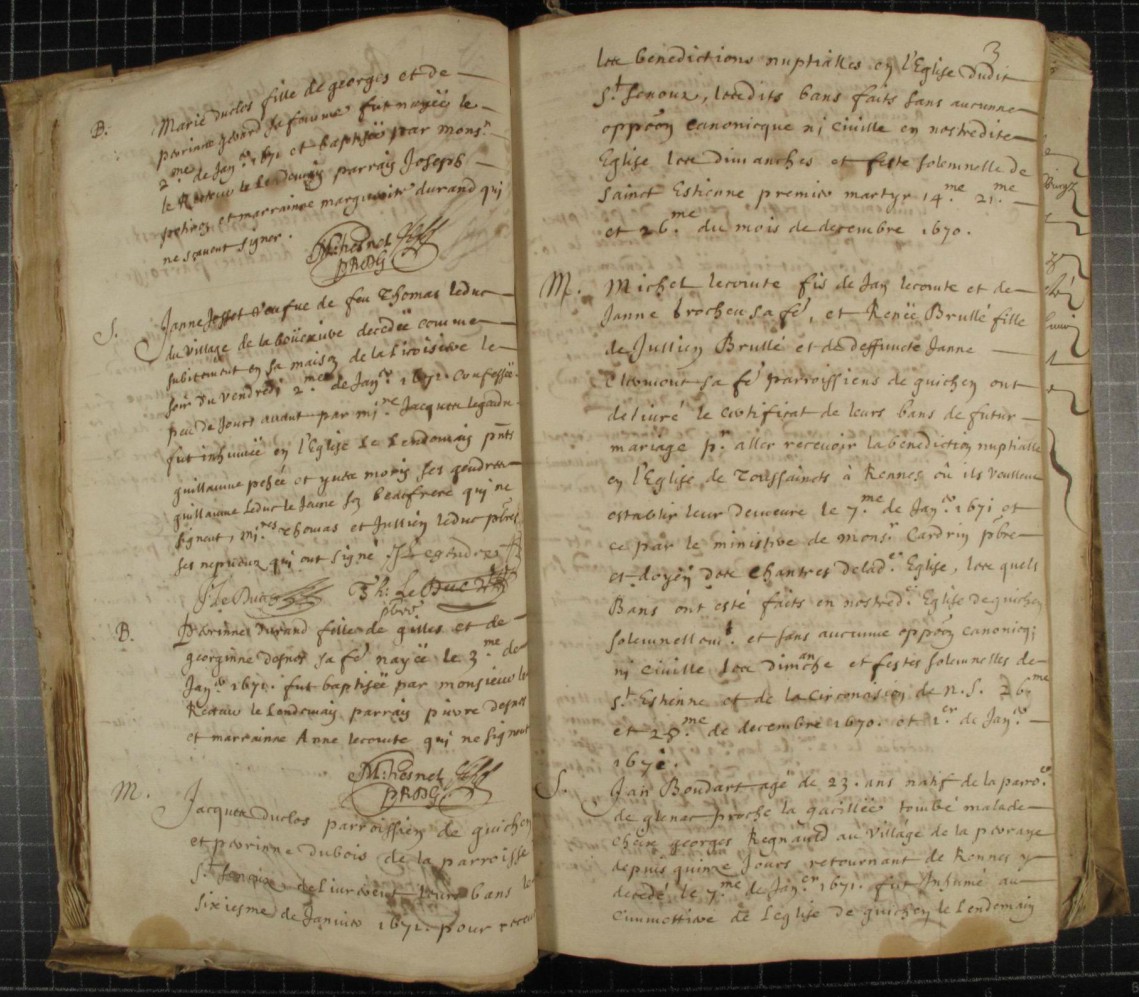 B. Marie duclos fille de georges et de
perrinne geard sa femme fut nayëe le
2.me de Janer. 1671 et baptisëe par monsr.
le Recteur le Lendemain parrain Joseph
et marrainne marguerite durand qui
ne scavent signer.
M: Fesnel
PRDG
S. Janne Josset veufue de feu Thomas leduc
du village de la decedëe comme
subitement en sa maison de la le
soir du vendredi 2.me de Janer. 1671. Confessëe
peu de Jours auant par mi.re Jacques legendre
fut inhumëe en l'Eglise Le Lendemain pnts
guillaume et yues moris ses gendres
guillaume leduc le Jeune son beaufrere qui ne
signent, mi.res Thomas et Jullien leduc pbres
ses nepueux qui ont signé. J: Legendre
J: le Duc Th: Le Duc
pbre
B. Perrinne Durand fille de gilles et de
georginne desnos sa fé nayëe le 3.me de
Janer 1671. fut baptisëe par monsieur le
Recteur le Lendemain parrain pierre desnos
et marrainne Anne lecomte qui ne signent
M: Fesnel
PRDG
M. Jacques duclos parroissien de guichen
et perrinne dubois de la parroisse
St. Senoux delivrerent leurs bans le
sixiesme de Janvier 1671. pour recev
3
les benedictions nuptialles en l'Eglise dudit
St. Senoux, lesdits bans faits sans aucunne
oppoon canonicque ni ciuille en nostredite
Eglise les dimanches et feste solemnelle de
Sainct Estienne premier martyr 14.me 21.me
et 26.me du mois de decembre 1670.
M. Michel lecomte fis de Jan lecomte et de
Janne brocheu sa fé, et Renëe Brullé fille
de Jullien Brullé et de deffuncte Janne
Clermont sa fé parroissiens de guichen ont
deliuré le certificat de leurs bans de futur
mariage pr. aller recevoir la benediction nuptialle
en l'Eglise de Toussaincts à Rennes où ils veullent
establir leur demeure le 7.me de Janer. 1671 et
ce par le ministere de monsr. Cardrin pbre
et doyen des Chantres de lade. Eglise, les quels
Bans ont esté faits en nostred. Eglise de guichen
solemnellemt. et sans aucunne oppoon canonicq;
ni ciuille les dimanche et festes solemnelles de
St. Estienne et de la Circoncision de N.S. 26me
et 28.me de decembre 1670. et 1.er de Janer.
1671.
S. Jan Boudart agë de 23. ans natif de la parroe.
de glenac proche la gacillëe tombé malade
chéix georges Regnauld au village de la peraye
depuis quinze Jours retournant de Rennes y
decedé le 7.me de Janer. 1671. fut Inhumé au
Cimmettiere de L'eglise de guichen le Lendemain